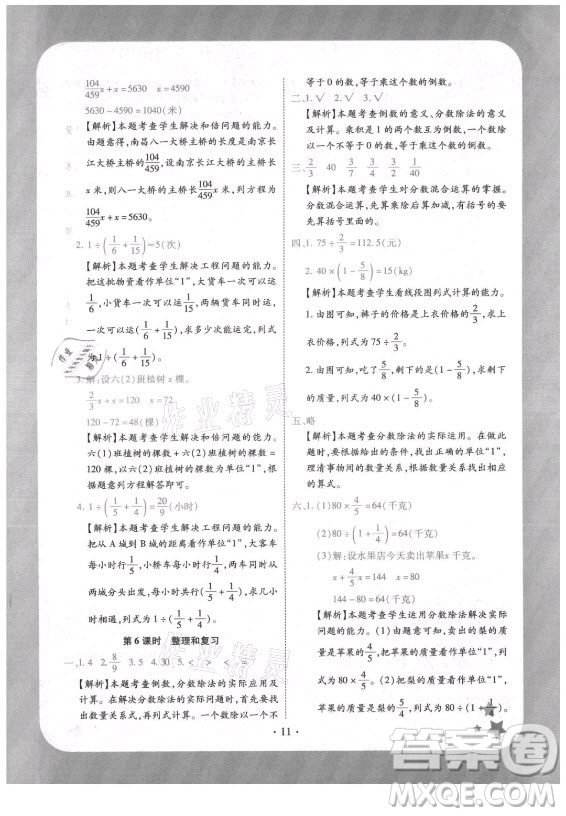 104/459 x+x=5630　x=4590
5630-4590=1040(米)
【解析】本题考查学生解决和倍问题的能力。
由题意得,南昌八一大桥主桥的长度是南京长
江大桥主桥的104/459,设南京长江大桥主桥长
x米,则八一大桥的主桥长104/459 x米,列方程为
104/459 x+x=5630。
2. 1÷(1/6+1/15)=5(次)
【解析】本题考查学生解决工程问题的能力。
把这批物资看作单位“1”,大货车一次可以运
1/6,小货车一次可以运1/15,两辆货车同时运一
次可以运(1/6+1/15),求多少次能运完,列式
为1÷(1/6+1/15)。
3. 解:设六(2)班植树x棵。
2/3 x+x=120　x=72
120-72=48(棵)
【解析】本题考查学生解决和倍问题的能力。
六(1)班植树的棵数+六(2)班植树的棵数=
120棵,以六(2)班植树的棵数为单位“1”,根
据问题列方程解答即可。
4. 1÷(1/5+1/4)=20/9(小时)
【解析】本题考查学生解决工程问题的能力。
把从A城到B城的距离看作单位“1”,大客车
每小时行1/5,小轿车每小时行1/4,求几小时
两城相通。式子为1÷(1/5+1/4)。
第6课时　整理和复习
一、1. 4　2. 8/9　3. 15　4. 30　5. <　>　<　=
【解析】本题考查倒数,分数除法的实际应用及
计算。解决分数除法的实际问题时,首先要找
出数量关系式,再列式计算。一个数除以一个不
等于0的数,等于乘这个数的倒数。
二、1. √　2. √　3. √
【解析】本题考查倒数的意义、分数除法的意义
及计算。乘积是1的两个数互为倒数。一个数除
以一个不等于0的数,等于乘这个数的倒数。
三、2/3　40　3/5　3/4　1/2　3/7
【解析】本题考查学生对分数混合运算的掌握。
分数混合运算,先算乘除后算加减,有括号的要
先算括号里面的。
四、1. 75÷2/3=112.5(元)
2. 40×(1-5/8)=15(kg)
【解析】本题考查学生看线段图列式计算的能力。
1. 由图可知,裤子的价格是上衣价格的2/3,求上
衣的价格,列式为75÷2/3。
2. 由图可知,用去了40千克的5/8,求剩下
的质量,列式为40×(1-5/8)。
五、略
【解析】本题考查分数除法的实际运用。此类题
目,找出正确的单位“1”,找出对应的数量关系,
理清事物间的数量关系,就可以找出与结果对应
的算式。
六、1. (1)80×4/5=64(千克)
(2)80÷(1+1/4)=64(千克)
(3)解:设水果店今天卖出苹果x千克。
x+4/5 x=144　x=80
144-80=64(千克)
【解析】本题考查学生运用分数除法解决实际
问题的能力。(1)把苹果的质量看作单位“1”,
梨的质量是苹果的4/5。(2)把梨的质量看作单位“1”,
苹果的质量是梨的5/4,也就是(1+1/4)。
· 11 ·
作业精灵
作业精灵
答案圈
MXQE.COM